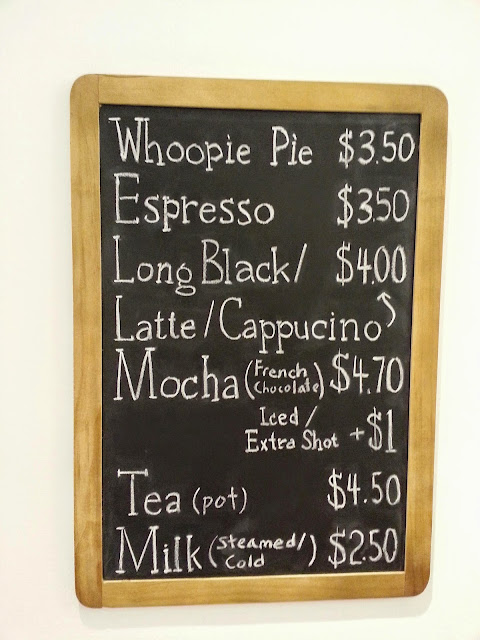 Whoopie Pie $3.50
Espresso $3.50
Long Black/ $4.00
Latte/Cappucino
Mocha (French Chocolate) $4.70
Iced/
Extra Shot +$1
Tea (pot) $4.50
Milk (Steamed/Cold) $2.50